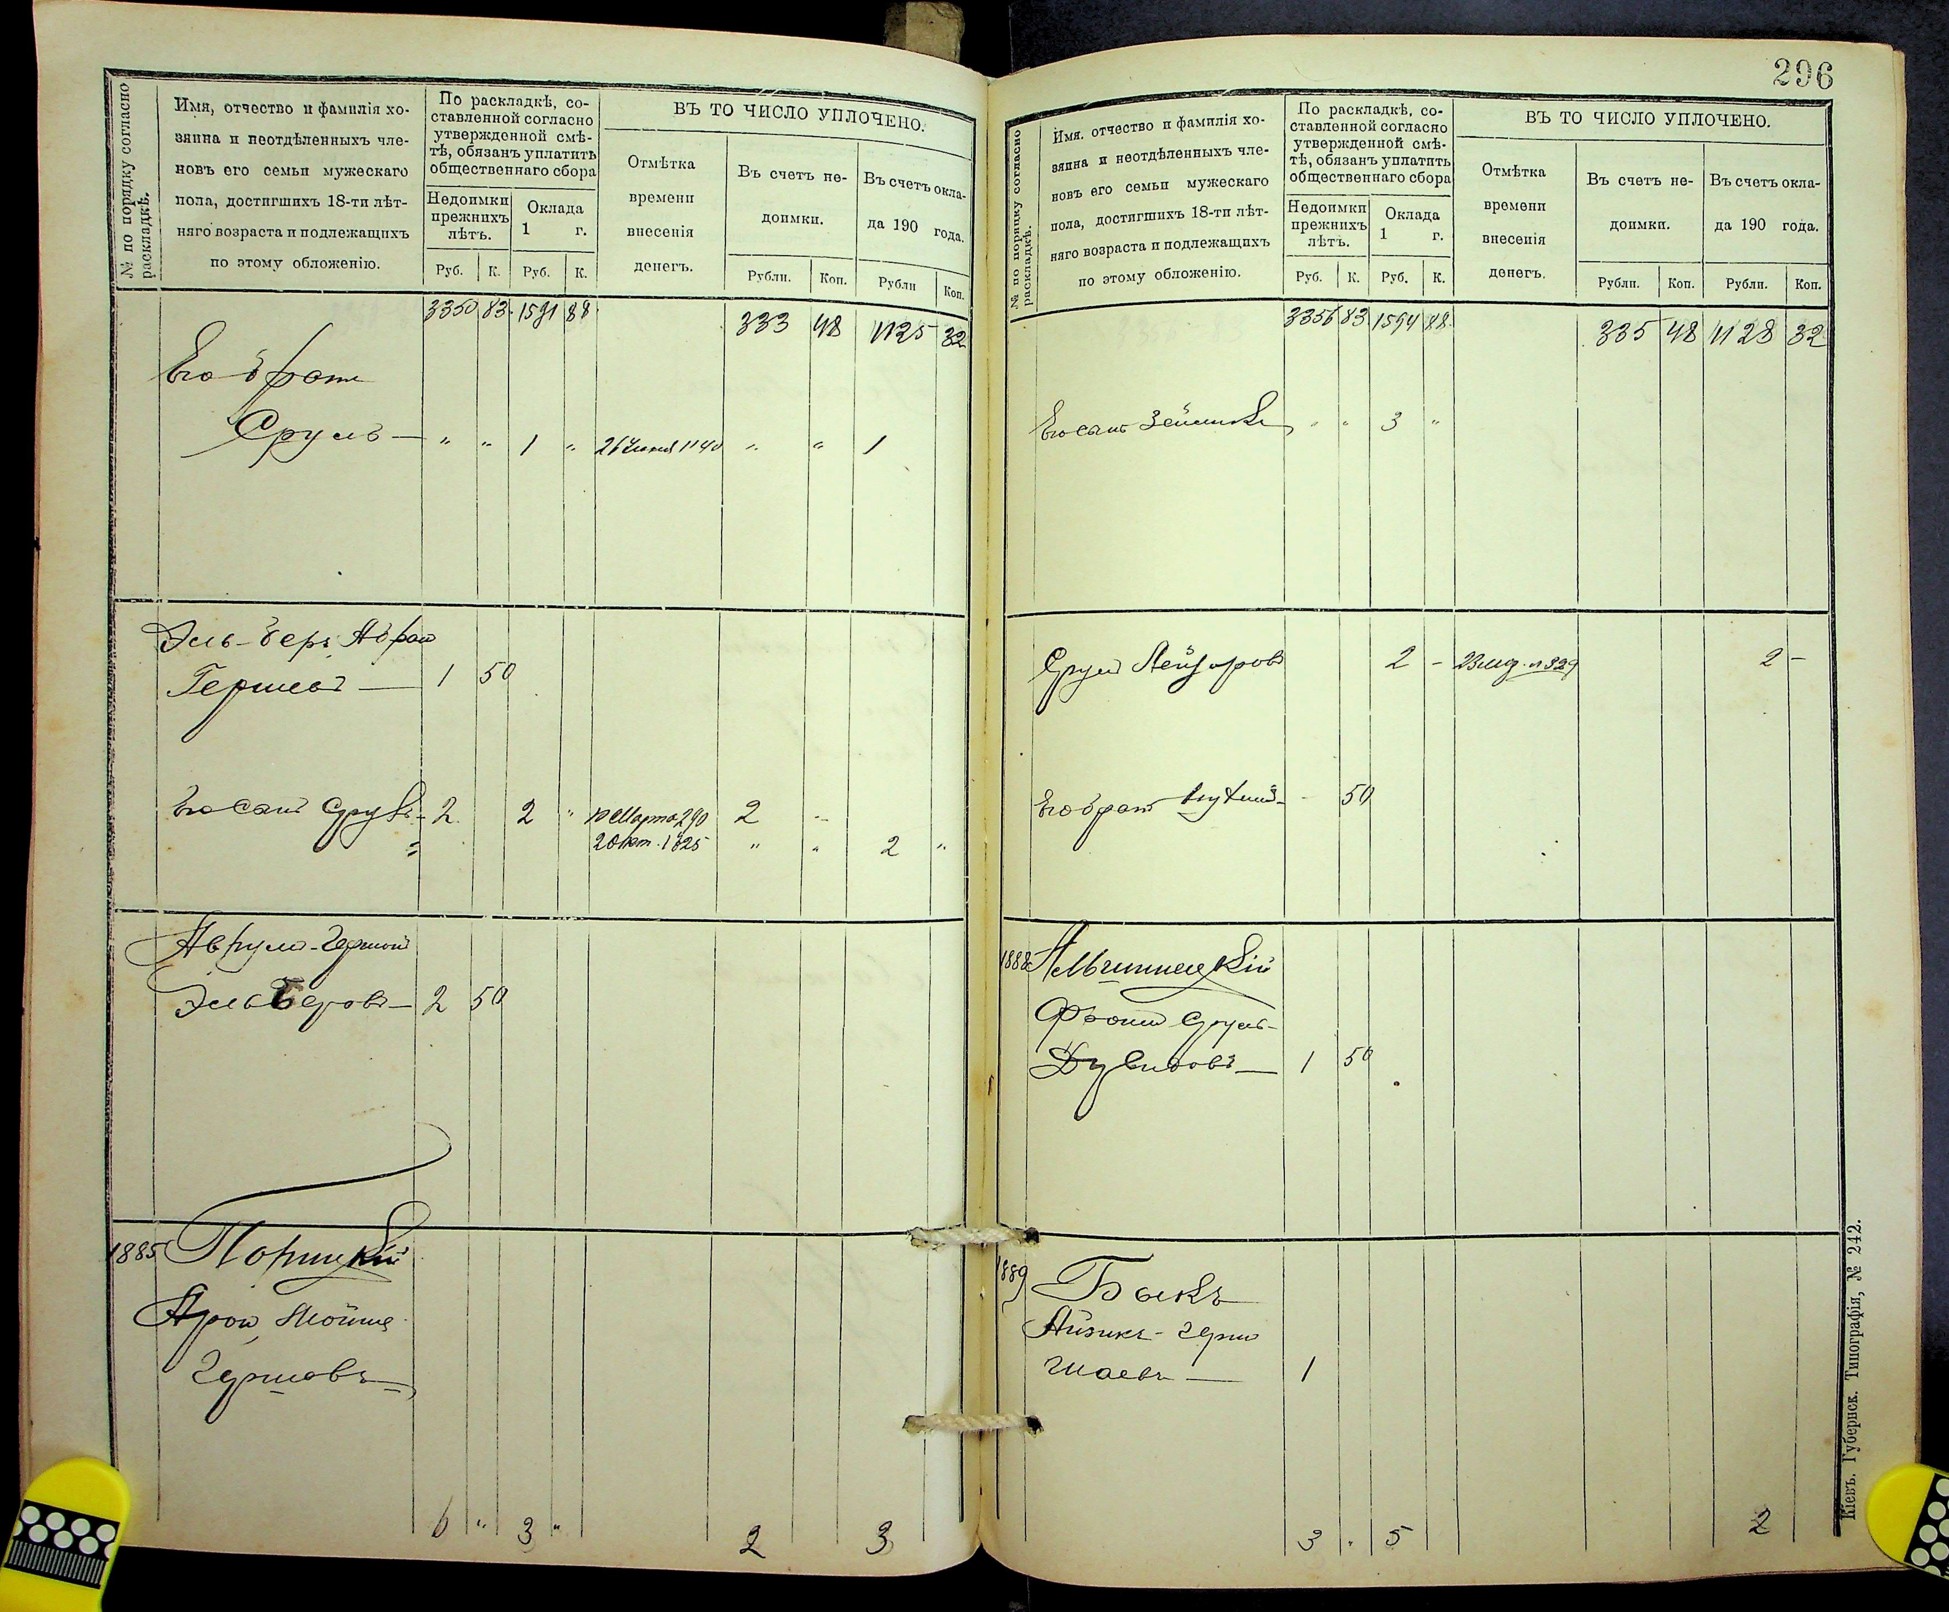 № по порядку согласно
раскладкѣ.
Имя, отчество и фамилія хо-
зяина и неотдѣленныхъ чле-
новъ его семьи мужескаго
пола, достигшихъ 18-ти лѣт-
няго возраста и подлежащихъ
по этому обложенію.
По раскладкѣ, со-
ставленной согласно
утвержденной смѣ-
тѣ, обязанъ уплатить
общественнаго сбора
Недоимки
прежнихъ
лѣтъ.
Оклада
1 г.
Руб. К. Руб. К.
ВЪ ТО ЧИСЛО УПЛОЧЕНО.
Отмѣтка
времени
внесенія
денегъ.
Въ счетъ не-
доимки.
Рубли. Коп.
Въ счетъ окла-
да 190 года.
Рубли Коп.
3350 83 1591 88 333 48 1125 32
Его братъ
Сруль — " " 1 " 26 Іюня 1140 " " 1
Эль-Беръ Абрам
Гершевъ — 1 50
Его сынъ Сруль 2 2 " 10 Марта 290 2 "
20 Окт. 1825 " " 2 "
Аврумъ-Гершон
Эльберовъ — 2 50
1885 Порицкій
Арон Мойше
Гершовъ —
6 " 3 " 2 3
296
№ по порядку согласно
раскладкѣ.
Имя, отчество и фамилія хо-
зяина и неотдѣленныхъ чле-
новъ его семьи мужескаго
пола, достигшихъ 18-ти лѣт-
няго возраста и подлежащихъ
по этому обложенію.
По раскладкѣ, со-
ставленной согласно
утвержденной смѣ-
тѣ, обязанъ уплатить
общественнаго сбора
Недоимки
прежнихъ
лѣтъ.
Оклада
1 г.
Руб. К. Руб. К.
ВЪ ТО ЧИСЛО УПЛОЧЕНО.
Отмѣтка
времени
внесенія
денегъ.
Въ счетъ не-
доимки.
Рубли. Коп.
Въ счетъ окла-
да 190 года.
Рубли. Коп.
3356 83 1594 88 335 48 1128 32
Его сынъ " " 3 "
Срул Лейзоровъ 2 - 329 2 -
Его братъ - 50
1888
Сруль-
Дувидовъ — 1 50
1889 Быкъ
Айзикъ-Герш
Шаевъ — 1
3 . 5 2
Кіевъ. Губернск. Типографія, № 242.